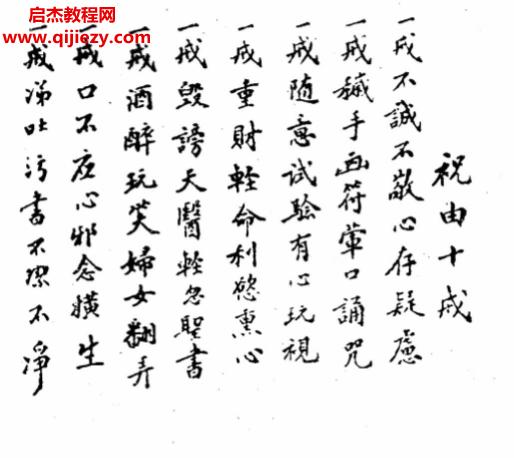 启杰教程网
www.qijiezy.com
祝由十戒
一戒不誠不敬心存疑慮
一戒穢手画符葷口誦咒
一戒随意試驗有心玩視
一戒重財軽命利慾熏心
一戒毀謗天醫軽忽聖書
一戒酒醉玩笑婦女翻弄
一戒口不应心邪念横生
一戒涕吐污書不潔不淨